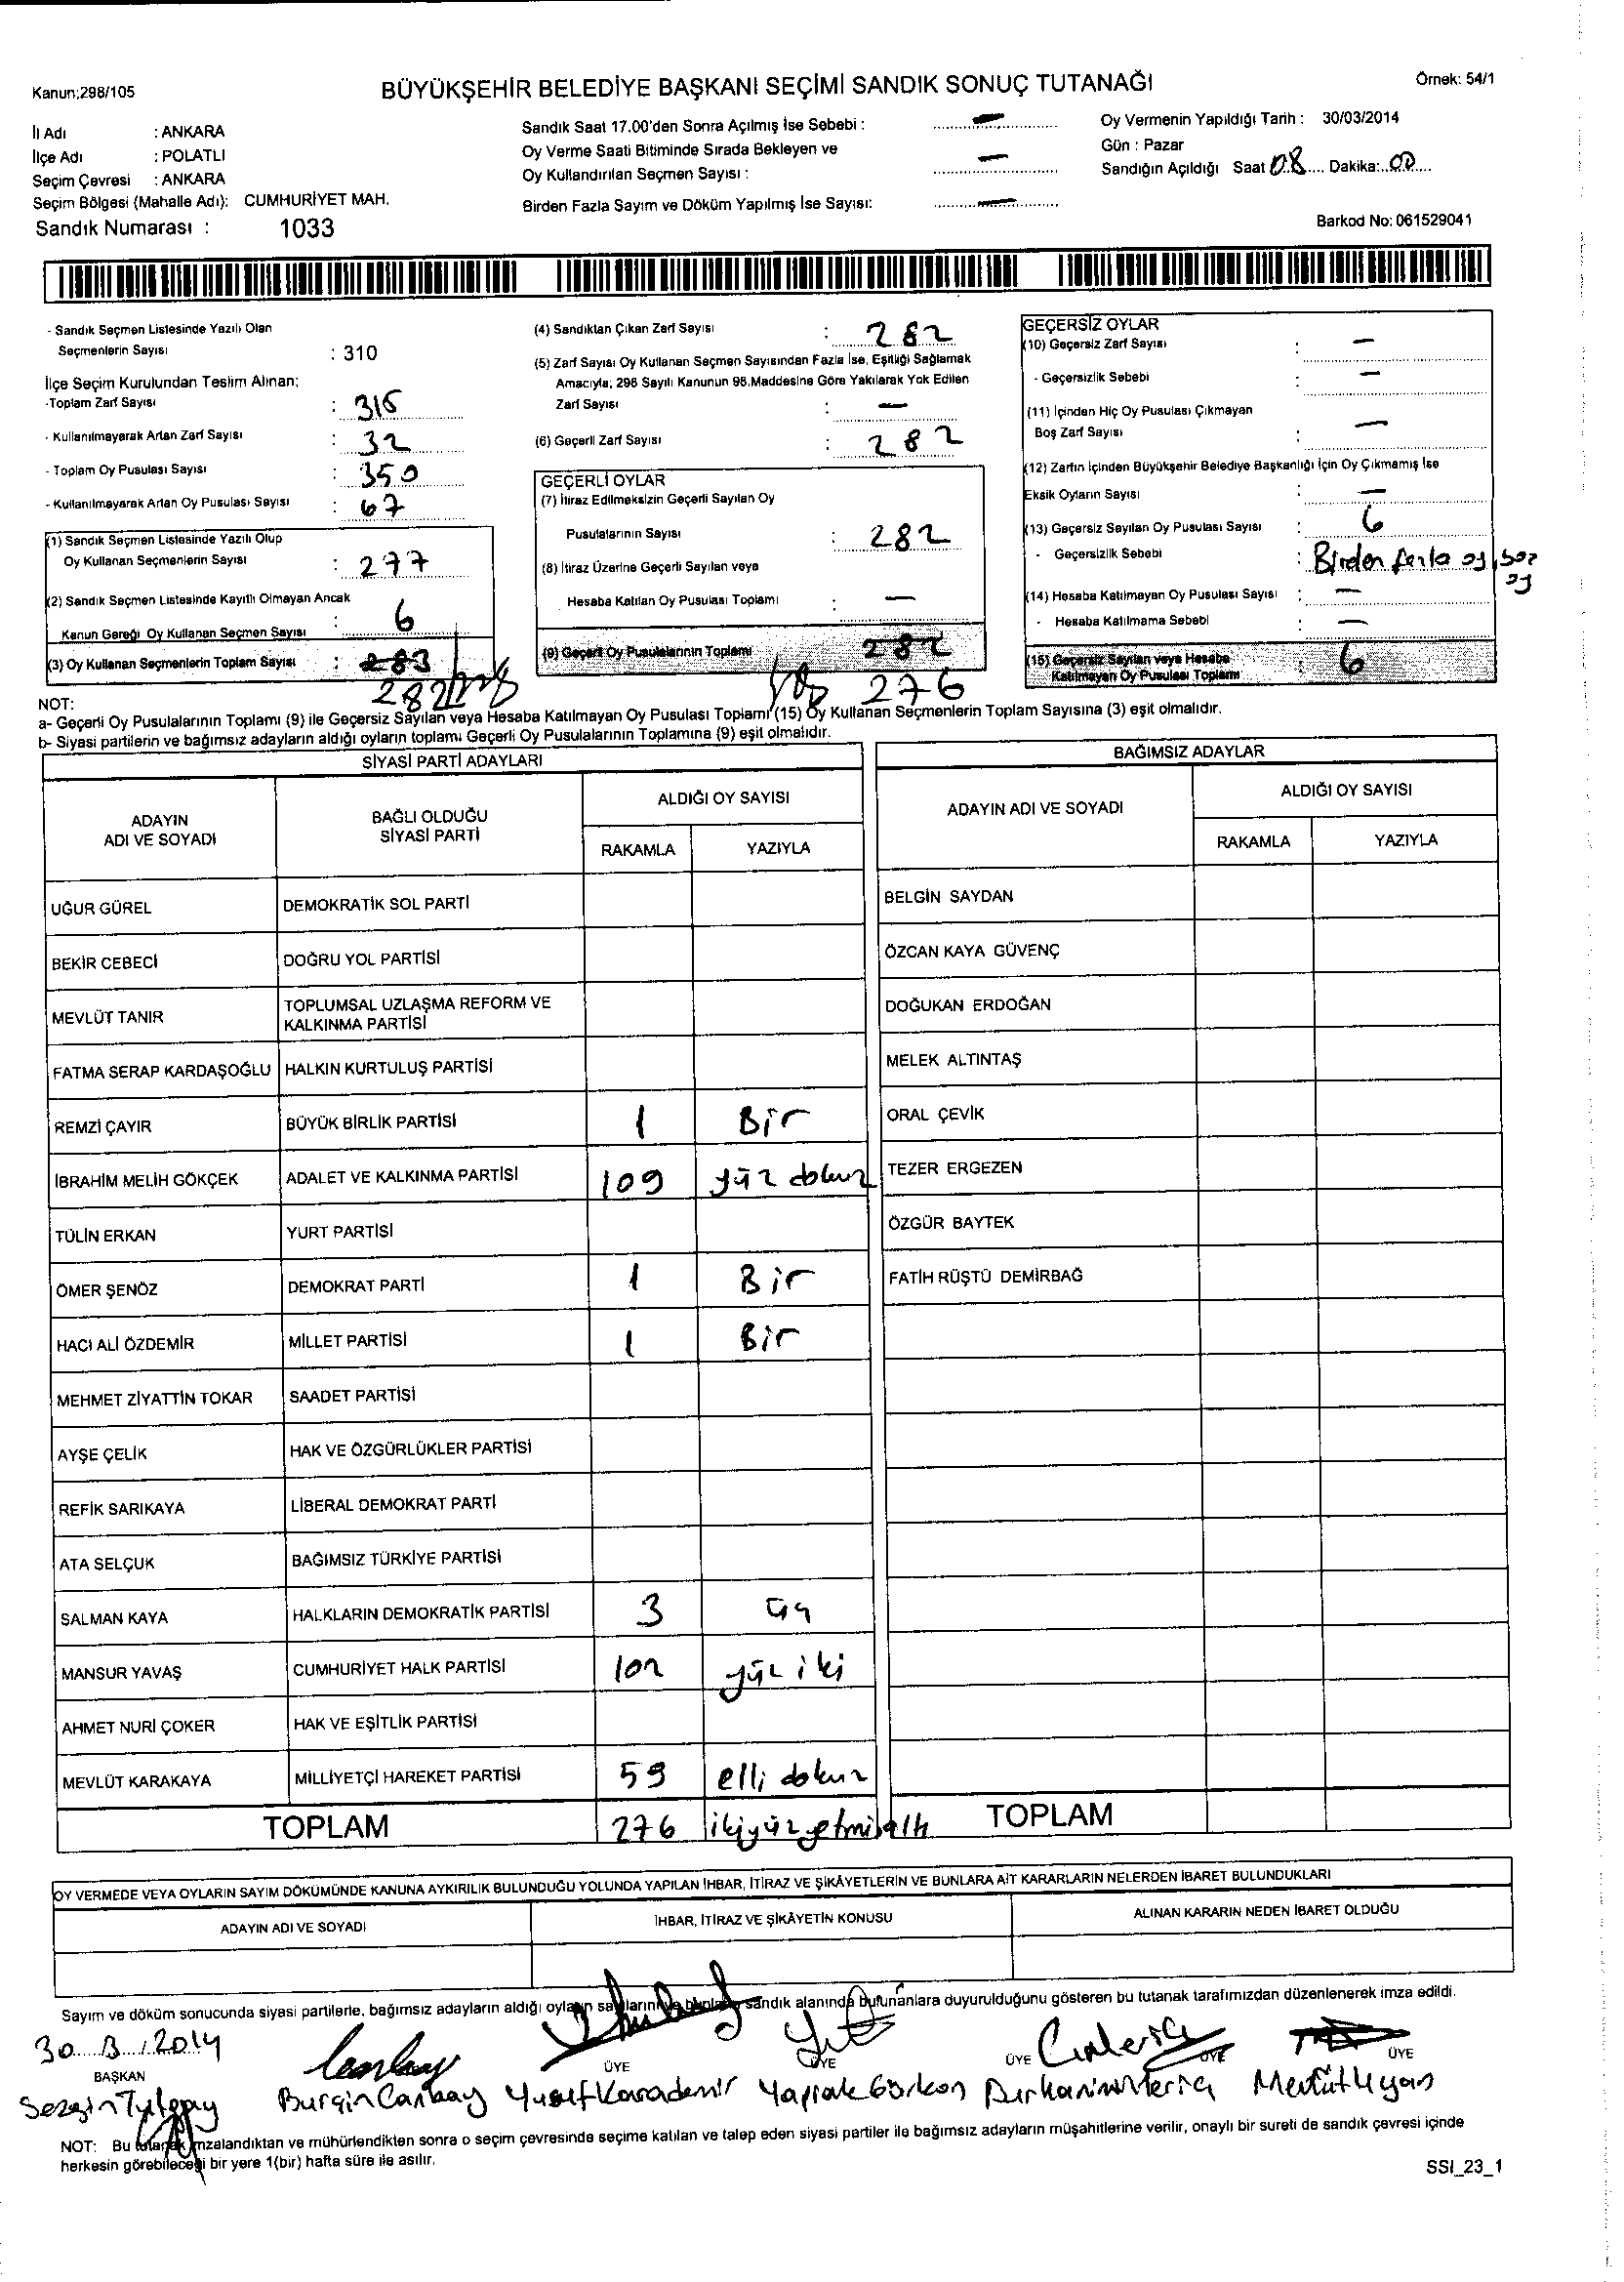 Kanun;298/105
BÜYÜKŞEHİR BELEDİYE BAŞKANI SEÇİMİ SANDIK SONUÇ TUTANAĞI
Örnek: 54/1
İl Adı : ANKARA
İlçe Adı : POLATLI
Seçim Çevresi : ANKARA
Seçim Bölgesi (Mahalle Adı): CUMHURİYET MAH.
Sandık Numarası : 1033
Sandık Saat 17.00'den Sonra Açılmış İse Sebebi : —
Oy Verme Saati Bitiminde Sırada Bekleyen ve
Oy Kullandırılan Seçmen Sayısı : —
Birden Fazla Sayım ve Döküm Yapılmış İse Sayısı: —
Oy Vermenin Yapıldığı Tarih : 30/03/2014
Gün : Pazar
Sandığın Açıldığı Saat 08 Dakika: 00
Barkod No: 061529041
- Sandık Seçmen Listesinde Yazılı Olan
Seçmenlerin Sayısı : 310
İlçe Seçim Kurulundan Teslim Alınan:
-Toplam Zarf Sayısı : 315
- Kullanılmayarak Artan Zarf Sayısı : 32
- Toplam Oy Pusulası Sayısı : 350
- Kullanılmayarak Artan Oy Pusulası Sayısı : 67
(1) Sandık Seçmen Listesinde Yazılı Olup
Oy Kullanan Seçmenlerin Sayısı : 277
(2) Sandık Seçmen Listesinde Kayıtlı Olmayan Ancak
Kanun Gereği Oy Kullanan Seçmen Sayısı : 6
(3) Oy Kullanan Seçmenlerin Toplam Sayısı : 283
282
(4) Sandıktan Çıkan Zarf Sayısı : 282
(5) Zarf Sayısı Oy Kullanan Seçmen Sayısından Fazla İse, Eşitliği Sağlamak
Amacıyla; 298 Sayılı Kanunun 98.Maddesine Göre Yakılarak Yok Edilen
Zarf Sayısı : —
(6) Geçerli Zarf Sayısı : 282
GEÇERLİ OYLAR
(7) İtiraz Edilmeksizin Geçerli Sayılan Oy
Pusulalarının Sayısı : 282
(8) İtiraz Üzerine Geçerli Sayılan veya
Hesaba Katılan Oy Pusulası Toplamı : —
(9) Geçerli Oy Pusulalarının Toplamı 282
276
GEÇERSİZ OYLAR
(10) Geçersiz Zarf Sayısı : —
- Geçersizlik Sebebi : —
(11) İçinden Hiç Oy Pusulası Çıkmayan
Boş Zarf Sayısı : —
(12) Zarfın İçinden Büyükşehir Belediye Başkanlığı İçin Oy Çıkmamış İse
Eksik Oyların Sayısı : —
(13) Geçersiz Sayılan Oy Pusulası Sayısı : 6
- Geçersizlik Sebebi : Birden fazla oy, boş
oy
(14) Hesaba Katılmayan Oy Pusulası Sayısı : —
- Hesaba Katılmama Sebebi : —
(15) Geçersiz Sayılan veya Hesaba
Katılmayan Oy Pusulası Toplamı : 6
NOT:
a- Geçerli Oy Pusulalarının Toplamı (9) ile Geçersiz Sayılan veya Hesaba Katılmayan Oy Pusulası Toplamı (15) Oy Kullanan Seçmenlerin Toplam Sayısına (3) eşit olmalıdır.
b- Siyasi partilerin ve bağımsız adayların aldığı oyların toplamı Geçerli Oy Pusulalarının Toplamına (9) eşit olmalıdır.
SİYASİ PARTİ ADAYLARI
ADAYIN
ADI VE SOYADI
BAĞLI OLDUĞU
SİYASİ PARTİ
ALDIĞI OY SAYISI
RAKAMLA YAZIYLA
UĞUR GÜREL DEMOKRATİK SOL PARTİ
BEKİR CEBECİ DOĞRU YOL PARTİSİ
MEVLÜT TANIR TOPLUMSAL UZLAŞMA REFORM VE
KALKINMA PARTİSİ
FATMA SERAP KARDAŞOĞLU HALKIN KURTULUŞ PARTİSİ
REMZİ ÇAYIR BÜYÜK BİRLİK PARTİSİ 1 Bir
İBRAHİM MELİH GÖKÇEK ADALET VE KALKINMA PARTİSİ 109 yüz dokuz
TÜLİN ERKAN YURT PARTİSİ
ÖMER ŞENÖZ DEMOKRAT PARTİ 1 Bir
HACI ALİ ÖZDEMİR MİLLET PARTİSİ 1 Bir
MEHMET ZİYATTİN TOKAR SAADET PARTİSİ
AYŞE ÇELİK HAK VE ÖZGÜRLÜKLER PARTİSİ
REFİK SARIKAYA LİBERAL DEMOKRAT PARTİ
ATA SELÇUK BAĞIMSIZ TÜRKİYE PARTİSİ
SALMAN KAYA HALKLARIN DEMOKRATİK PARTİSİ 3 üç
MANSUR YAVAŞ CUMHURİYET HALK PARTİSİ 102 yüz iki
AHMET NURİ ÇOKER HAK VE EŞİTLİK PARTİSİ
MEVLÜT KARAKAYA MİLLİYETÇİ HAREKET PARTİSİ 59 elli dokuz
TOPLAM 276 ikiyüzyetmişaltı
BAĞIMSIZ ADAYLAR
ADAYIN ADI VE SOYADI
ALDIĞI OY SAYISI
RAKAMLA YAZIYLA
BELGİN SAYDAN
ÖZCAN KAYA GÜVENÇ
DOĞUKAN ERDOĞAN
MELEK ALTINTAŞ
ORAL ÇEVİK
TEZER ERGEZEN
ÖZGÜR BAYTEK
FATİH RÜŞTÜ DEMİRBAĞ
TOPLAM
OY VERMEDE VEYA OYLARIN SAYIM DÖKÜMÜNDE KANUNA AYKIRILIK BULUNDUĞU YOLUNDA YAPILAN İHBAR, İTİRAZ VE ŞİKÂYETLERİN VE BUNLARA AİT KARARLARIN NELERDEN İBARET BULUNDUKLARI
ADAYIN ADI VE SOYADI İHBAR, İTİRAZ VE ŞİKÂYETİN KONUSU ALINAN KARARIN NEDEN İBARET OLDUĞU
Sayım ve döküm sonucunda siyasi partilerle, bağımsız adayların aldığı oyların sayılarının ve bunların sandık alanında bulunanlara duyurulduğunu gösteren bu tutanak tarafımızdan düzenlenerek imza edildi.
30.3.2014
BAŞKAN ÜYE ÜYE ÜYE ÜYE ÜYE
Burçin Canbay Yusuf Karademir Yaprak Görkon
NOT: Bu tutanak imzalandıktan ve mühürlendikten sonra o seçim çevresinde seçime katılan ve talep eden siyasi partiler ile bağımsız adayların müşahitlerine verilir, onaylı bir sureti de sandık çevresi içinde
herkesin görebileceği bir yere 1(bir) hafta süre ile asılır.
SSI_23_1